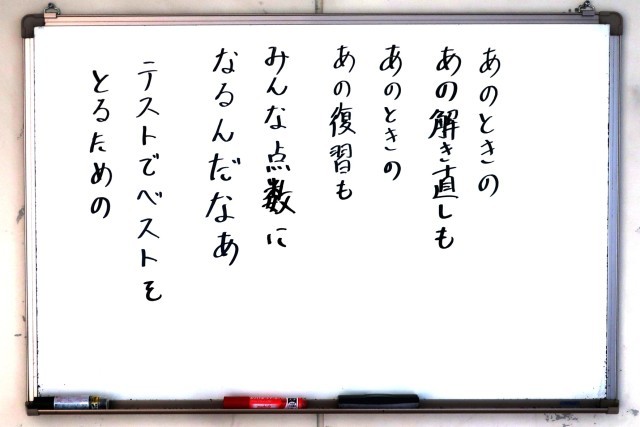 あのときの
あの解き直しも
あのときの
あの復習も
みんな点数に
なるんだなあ
テストでベストを
とるための